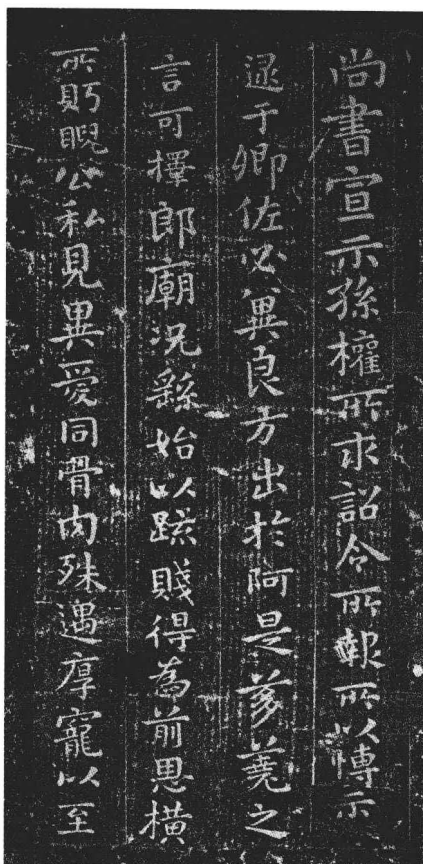 尚書宣示孫權所求詔令所報所以博示
逯于卿佐必異良方出於阿是芻蕘之
言可擇郎廟況繇始以疏賤得為前恩橫
所䀼睨公私見異愛同骨肉殊遇厚寵以至